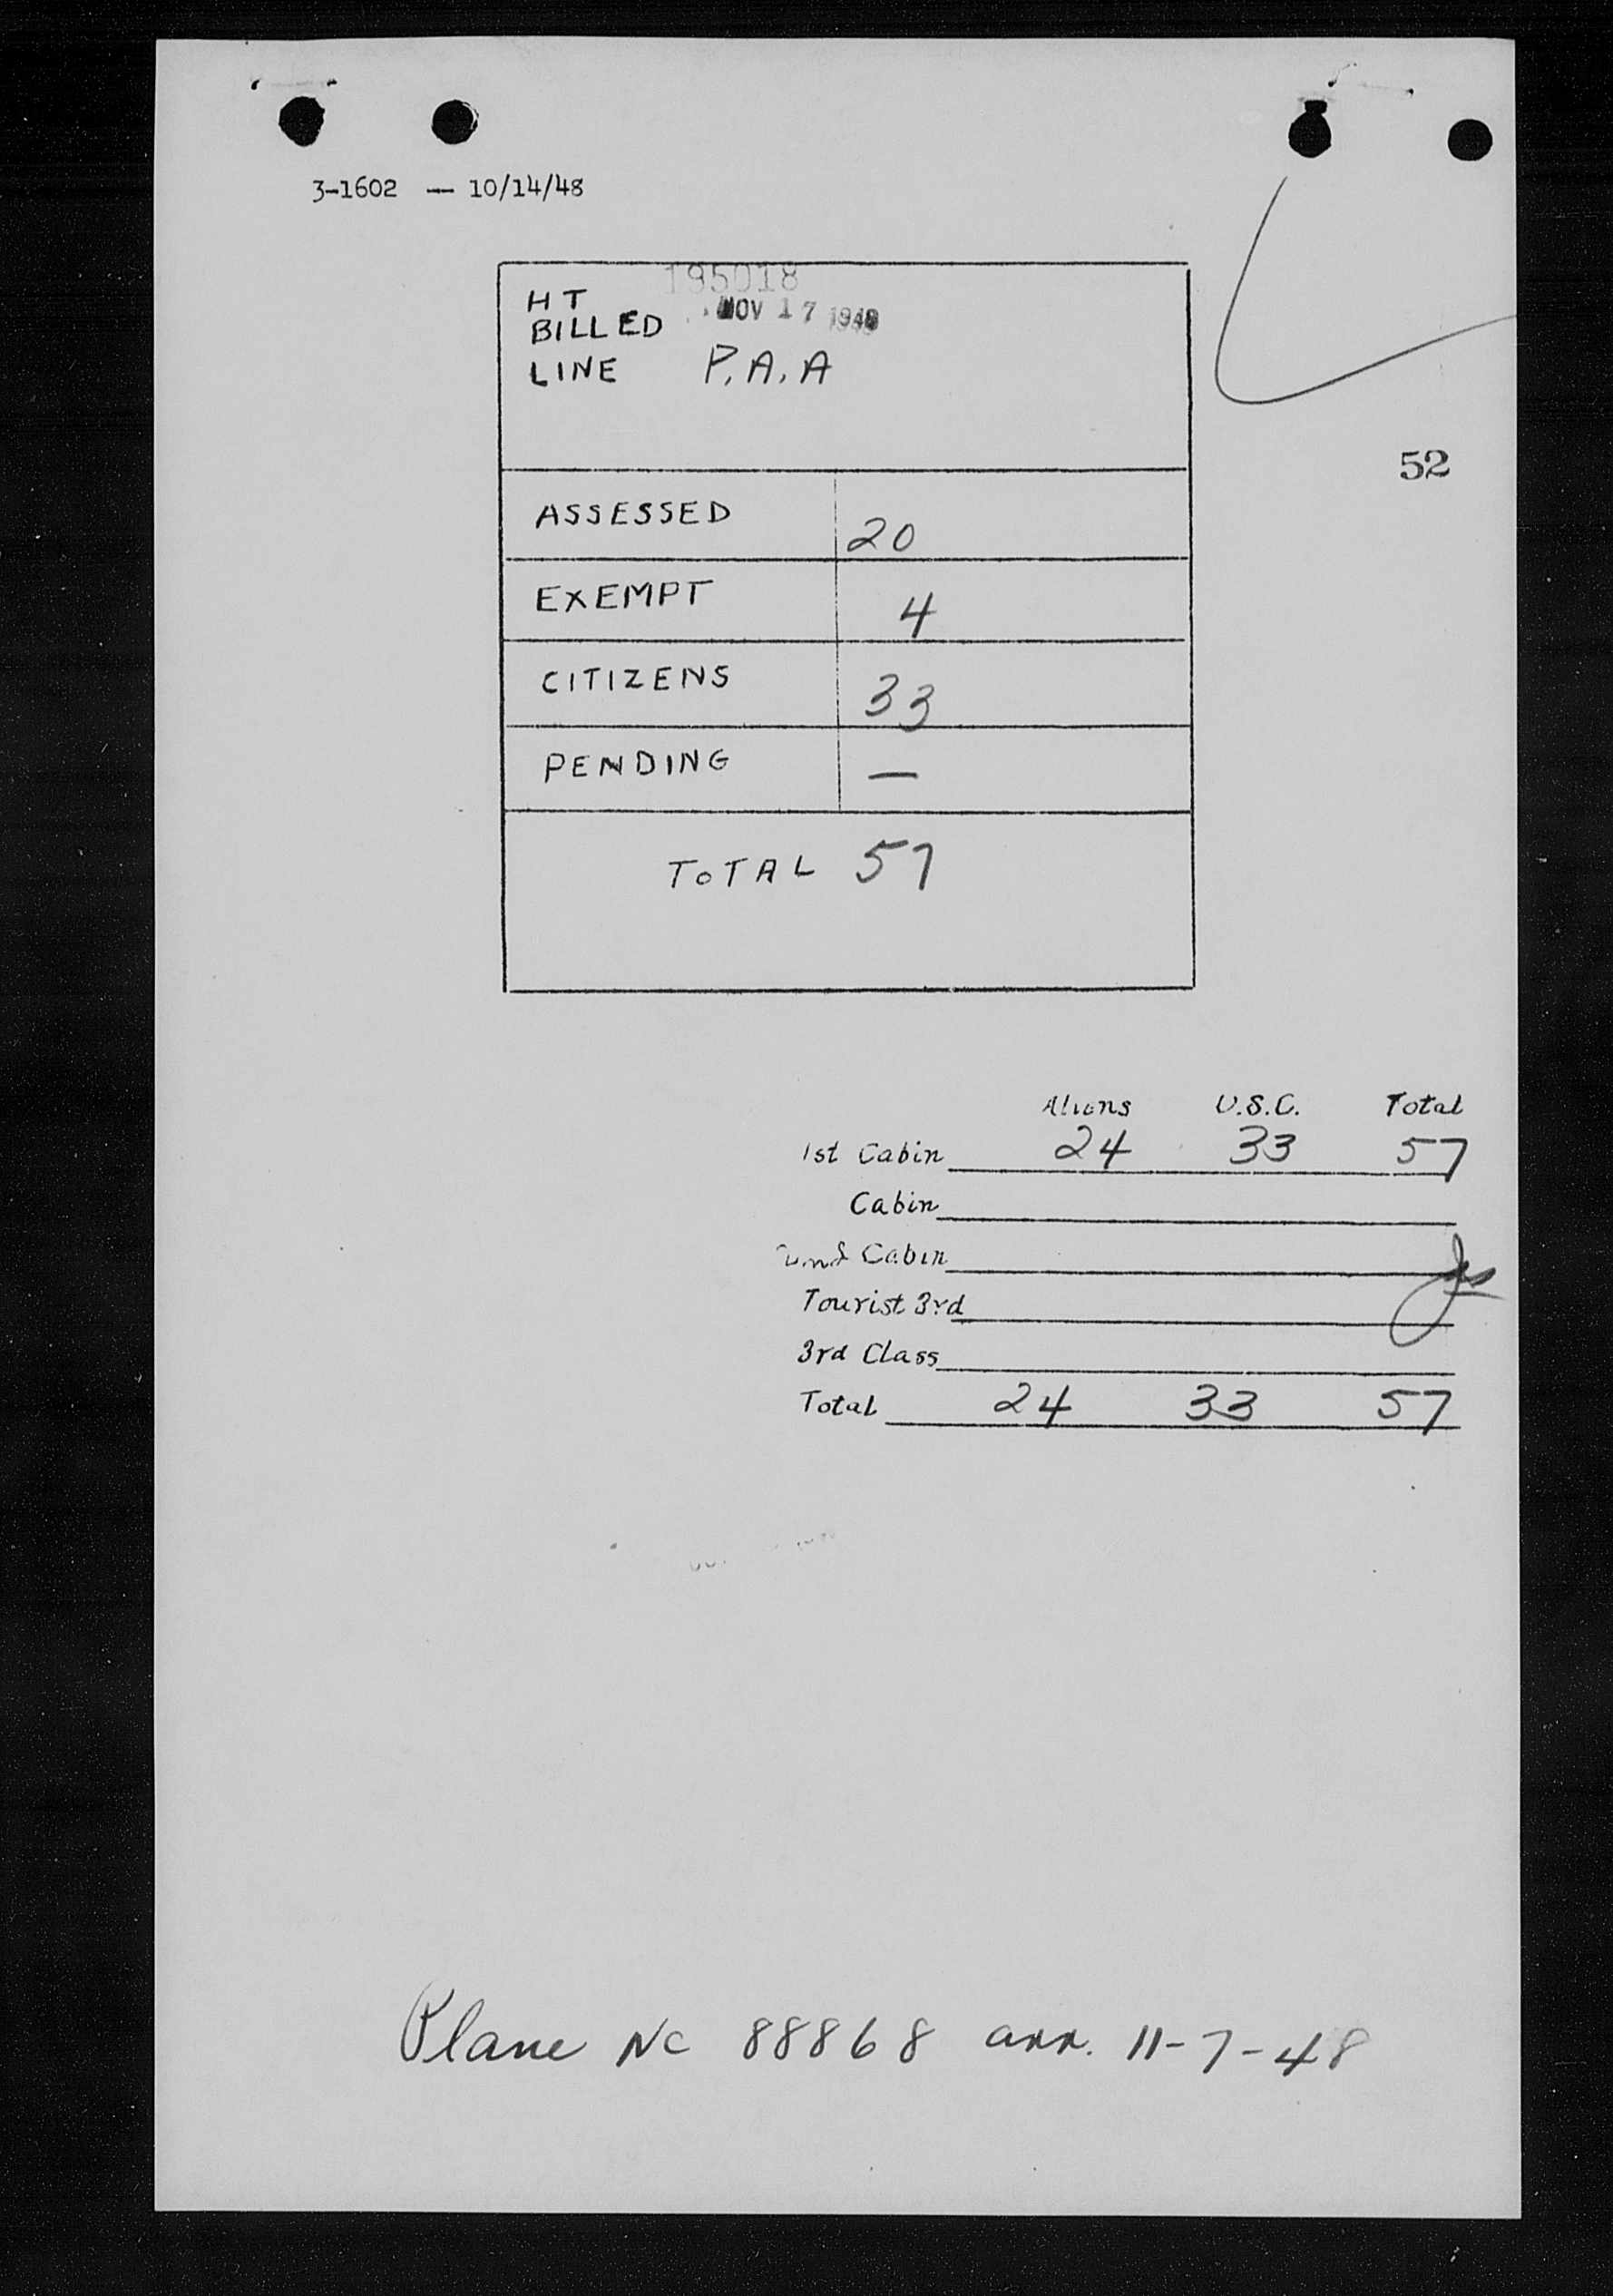 3-1602 — 10/14/48
195018
HT
BILLED NOV 17 1948
LINE P.A.A
52
ASSESSED 20
EXEMPT 4
CITIZENS 33
PENDING —
TOTAL 57
Aliens U.S.C. Total
1st Cabin 24 33 57
Cabin
Cabin
Tourist 3rd
3rd Class
Total 24 33 57
Plane NC 88868 arr. 11-7-48